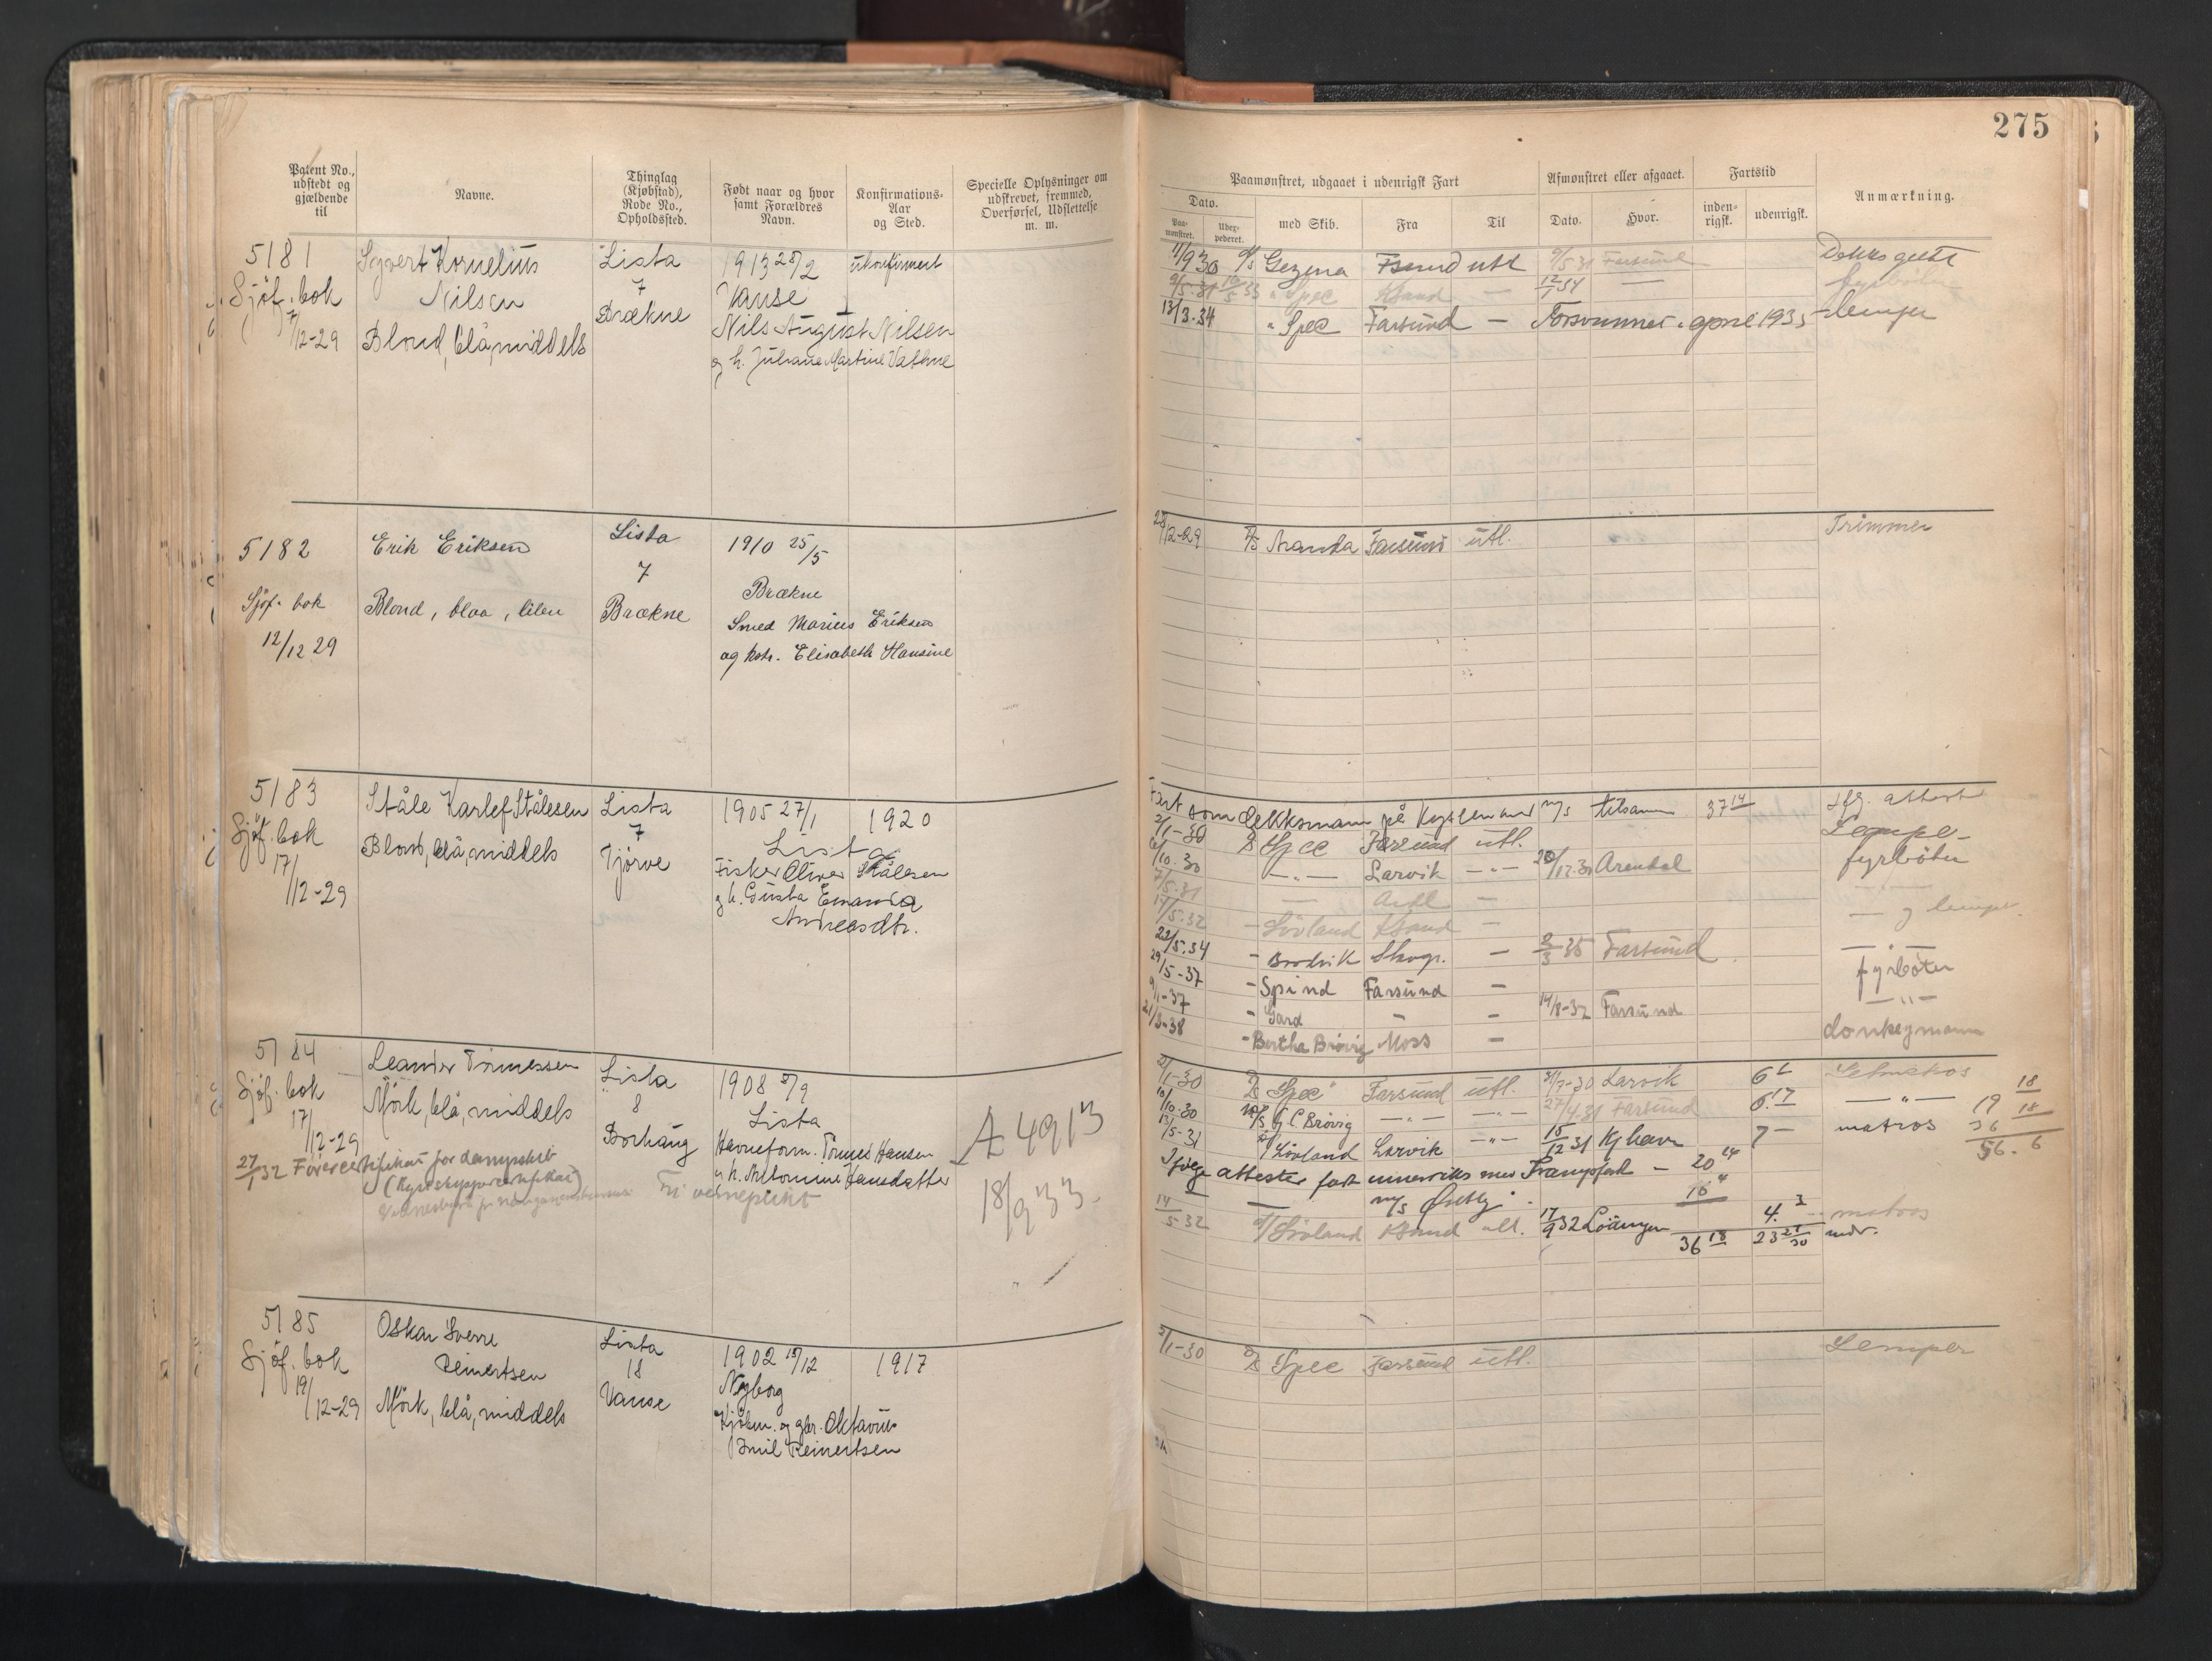 275
Patent No., udstedt og gjældende til
Navne.
Thinglag (Kjøbstad), Rode No., Opholdssted.
Født naar og hvor samt Forældres Navn.
Konfirmations-Aar og Sted.
Specielle Oplysninger om udskrevet, fremmed, Overførsel, Udslettelse m. m.
Paamønstret, udgaaet i udenrigsk Fart
Dato.
Paa-mønstret.
Udex-pederet.
med Skib.
Fra
Til
Afmønstret eller afgaaet.
Dato.
Hvor.
Fartstid
inden-rigsk.
udenrigsk.
Anmærkning.
5181
Sjöf. bok
7/12-29
Sigvert Kornelius
Nilsen
Blond, blå, middels
Lista
7
Brækne
1913 28/2
Vanse
Nils August Nilsen
og h. Juliane Martine Vathne
ukonfirmert
11/9 30 Gezina Fsund utl 9/5 31 Farsund Dekksgutt
Spec Ksand — 12/1 34 — fyrböter
13/3.34 " Spec Farsund — Forsvunnet april 1935 lemper
5182
Sjöf. bok
12/12 29
Erik Eriksen
Blond, blaa, liten
Lista
7
Brækne
1910 25/5
Brækne
Smed Marius Eriksen
og hstr. Elisabeth Hansine
28/12-29 Farsund utl. Trimmer
5183
Sjöf. bok
17/12-29
Ståle Karlef Stålesen
Blond, blå, middels
Lista
7
Tjörve
1905 27/1
1920
Lista
Fisker Oliver Stålesen
og h. Gusta Emania
Andreasdtr.
Fart som dekksmann på Kysten med m/s tilsamm 37 14 ifg. attest
2/1-30 Spec Farsund utl. Lempe-
6/10.30 —"— Larvik —"— 20/12.30 Arendal fyrböter
7/5.31 — —
14/5.32 - Lövland Ksand — — og lemper
22/5.34 - Brodvik — 2/3 35 Farsund —
29/5-37 - Spind Farsund — fyrböter
9/1-37 - Gard - — 14/8-37 Farsund —"—
21/3-38 - Bertha Brövig Moss — donkeymann
5184
Sjöf. bok
17/12-29
Leander Tönnessen
Mörk, blå, middels
Lista
8
Borhaug
1908 5/9
Lista
Havneform. Tönnes Hansen
Hansdatter
27/1 32 Förercertifikat for dampskib
(Kystskippercertifikat)
Fri verneplikt
A 4913
18/9 33
2/1-30 "Spec" Farsund utl. 31/7-30 Larvik 6 Letmatros
10/10.30 G. C. Brövig —"— —"— 27/4.31 Farsund 6.17 —"—
13/5-31 Lövland Larvik —"— 15/12 31 Kjhavn 7 — matros
19 18
36 18
56. 6
Ifølge attester fart innenriks med Trampfart — 20
— m/s Østby 16
14/5 32 Lövland Ksand utl. 17/9 32 4. 3 matros
36 18 23 21/30 mdr.
5185
Sjöf. bok
19/12-29
Oskar Sverre
Reinertsen
Mörk, blå, middels
Lista
18
Vanse
1902 15/12
1917
Nyborg
Kjöbm. og gbr. Oktavius
Emil Reinertsen
2/1-30 Spec Farsund utl. Lemper